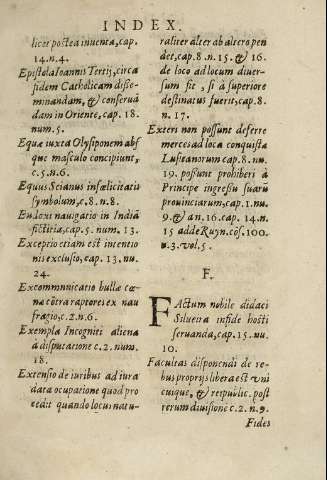 INDEX.
licet postea inuenta, cap.
14. n. 4.
Epistola Ioannis Tertij, circa
fidem Catholicam disse-
minandam, & conseruā
dam in Oriente, cap. 18.
num. 5.
Equæ iuxta Olysiponem abs
que masculo concipiunt,
c. 5. n. 6.
Equus Seianus infælicitatis
symbolum, c. 8. n. 8.
Eudoxi nauigatio in Indiā
fictitia, cap. 5. num. 13.
Exceptio etiam est intentio
nis exclusio, cap. 13. nu.
24.
Excommunicatio bullæ cœ-
næ cōtra raptores ex nau
fragio, c. 2. n. 6.
Exempla Incogniti aliena
à disputatione c. 2. num.
18.
Extensio de iuribus ad iura
data occupatione quod pro
cedit quando locus natu-
raliter alter ab altero pen
det, cap. 8. n. 15. & 16.
de loco ad locum diuer-
sum fit, si à superiore
destinatus fuerit, cap. 8.
n. 17.
Exteri non possunt deferre
merces ad loca conquista
Lusitanorum cap. 8. nu.
19. possunt prohiberi à
Principe ingressu suarū
prouinciarum, cap. 1. nu.
9. & an. 16. cap. 14. n.
15 adde Ruyn. cōs. 100.
n. 3. vol. 5.
F.
FActum nobile didaci
Silueira in fide hosti
seruanda, cap. 15. nu.
10.
Facultas disponendi de re-
bus proprijs libera est vni
cuique, & reipublic. post
rerum diuisione c. 2. n. 9.
Fides